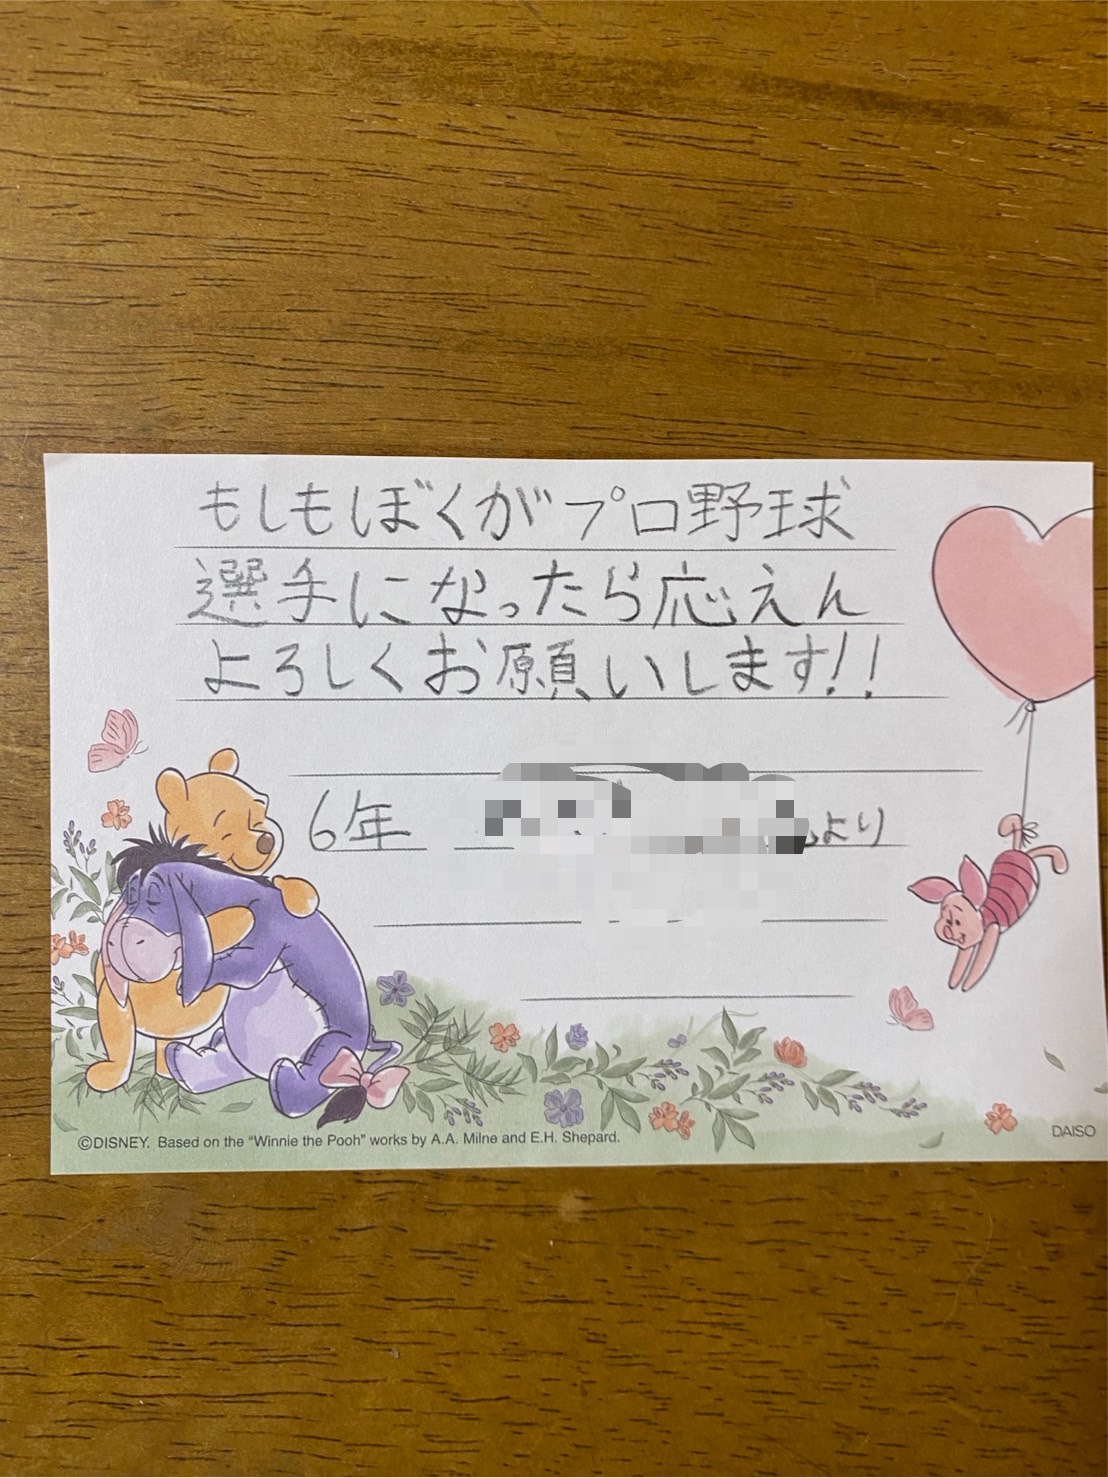 もしもぼくがプロ野球
選手になったら応えん
よろしくお願いします!!
6年
より
©DISNEY. Based on the "Winnie the Pooh" works by A.A. Milne and E.H. Shepard.
DAISO